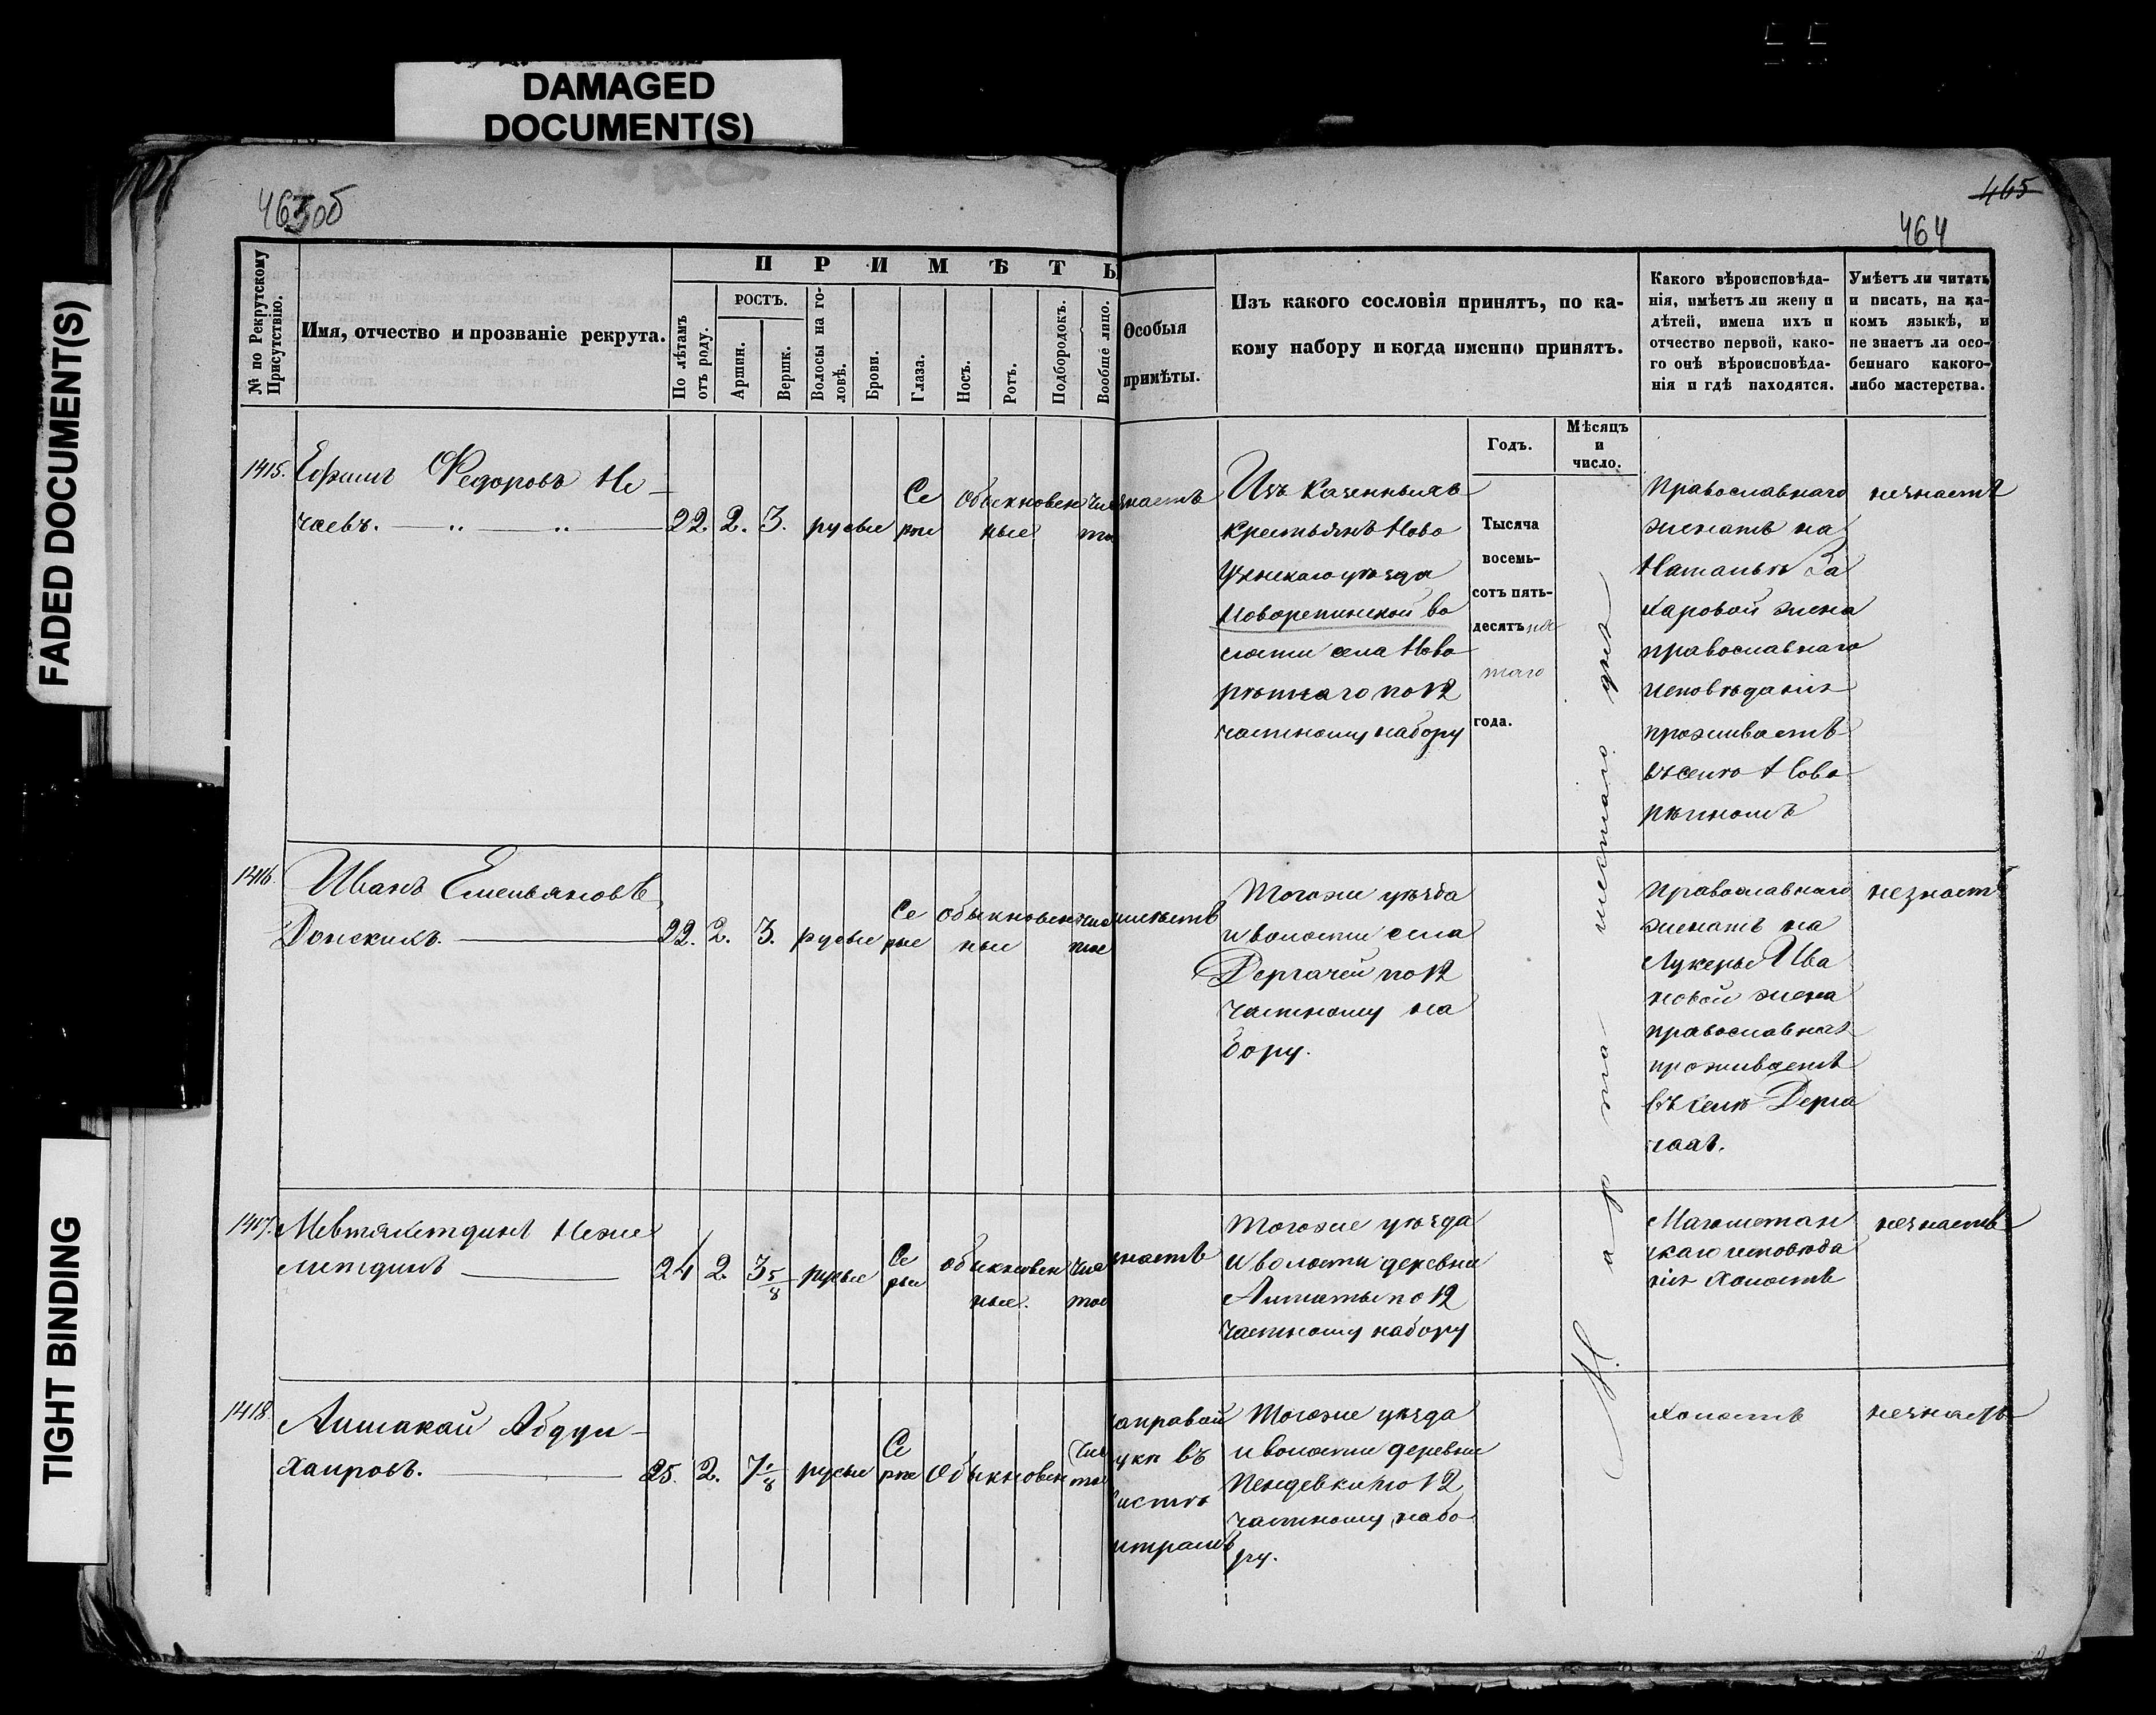 DAMAGED
DOCUMENT(S)
FADED DOCUMENT(S)
TIGHT BINDING
463об
465
464
№ по Рекрутскому
Присутствію.
Имя, отчество и прозваніе рекрута.
ПРИМѢТЫ
По лѣтамъ
отъ роду.
РОСТЪ.
Аршин.
Вершк.
Волосы на го-
ловѣ.
Брови.
Глаза.
Носъ.
Ротъ.
Подбородокъ.
Вообще лицо.
Особыя
примѣты.
Изъ какого сословія принятъ, по ка-
кому набору и когда именно принятъ.
Годъ.
Мѣсяцъ
и
число.
Какого вѣроисповѣда-
нія, имѣетъ ли жену и
дѣтей, имена ихъ и
отчество первой, како-
го онѣ вѣроисповѣда-
нія и гдѣ находятся.
Умѣетъ ли читать
и писать, на ка-
комъ языкѣ, и
не знаетъ ли осо-
беннаго какого-
либо мастерства.
1415.
Ефимъ Федоровъ Не-
чаевъ.
22. 2. 3. русые
Се
рые
обыкновен
ные
Изъ Казенныхъ
крестьянъ Ново
Узенскаго уѣзда
Новорепинской во
лости села Ново
рѣпнаго по 12
частному набору
Тысяча
восемь-
сотъ пять-
десятъ пя
таго
года.
Марта шестаго дня
Православнаго
женатъ на
Натальѣ За
харовой жена
православнаго
исповѣданія
проживаетъ
въ селѣ Ново
рѣпномъ
незнаетъ
1416.
Иванъ Емельяновъ
Донскихъ.
22. 2. 3. русые
Се
рые
обыкновен
ные
чис
тое
неимѣетъ
Тогоже уѣзда
и волости села
Дергачей по 12
частному на
бору.
Православнаго
женатъ на
Лукерье Ива
новой жена
православная
проживаетъ
въ селѣ Дерга
чахъ.
незнаетъ
1417.
летдинъ
24 2. 3 5/8 русые
Се
рые
обыкновен
ные.
чис
тое
Тогоже уѣзда
и волости деревни
Алтаты по 12
частному набору
Магометан
скаго исповѣда
нія холостъ
незнаетъ
1418.
Алтакай Абдул-
хаировъ.
25. 2. 7 1/8 русые
Се
рые
Обыкновен
чис
тое
на правой
руки въ
кисти
шрамъ
Тогоже уѣзда
и волости деревни
по 12
частному набо
ру.
холостъ
незнаетъ